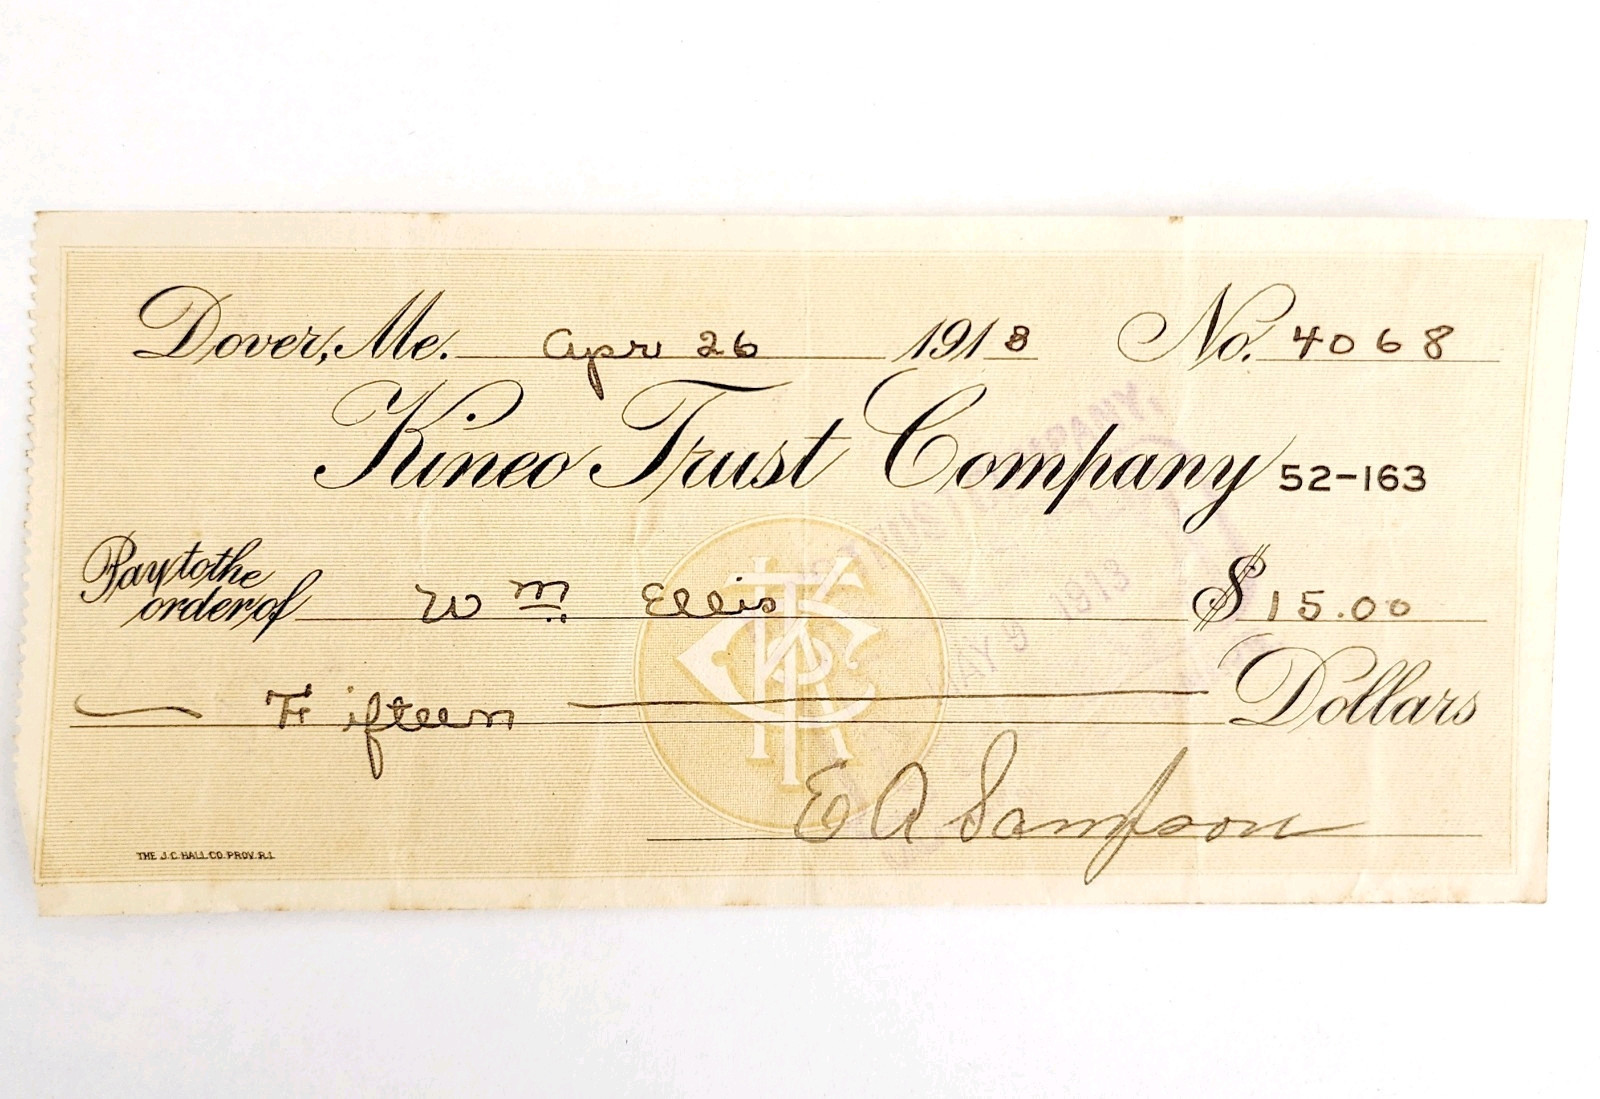 Dover, Me. Apr 26 1913 No. 4068
Kineo Trust Company 52-163
Pay to the order of Wm. Ellis $15.00
Fifteen Dollars
MAY 9 1913
E A Sampson
THE J.C. HALL CO. PROV. R.I.